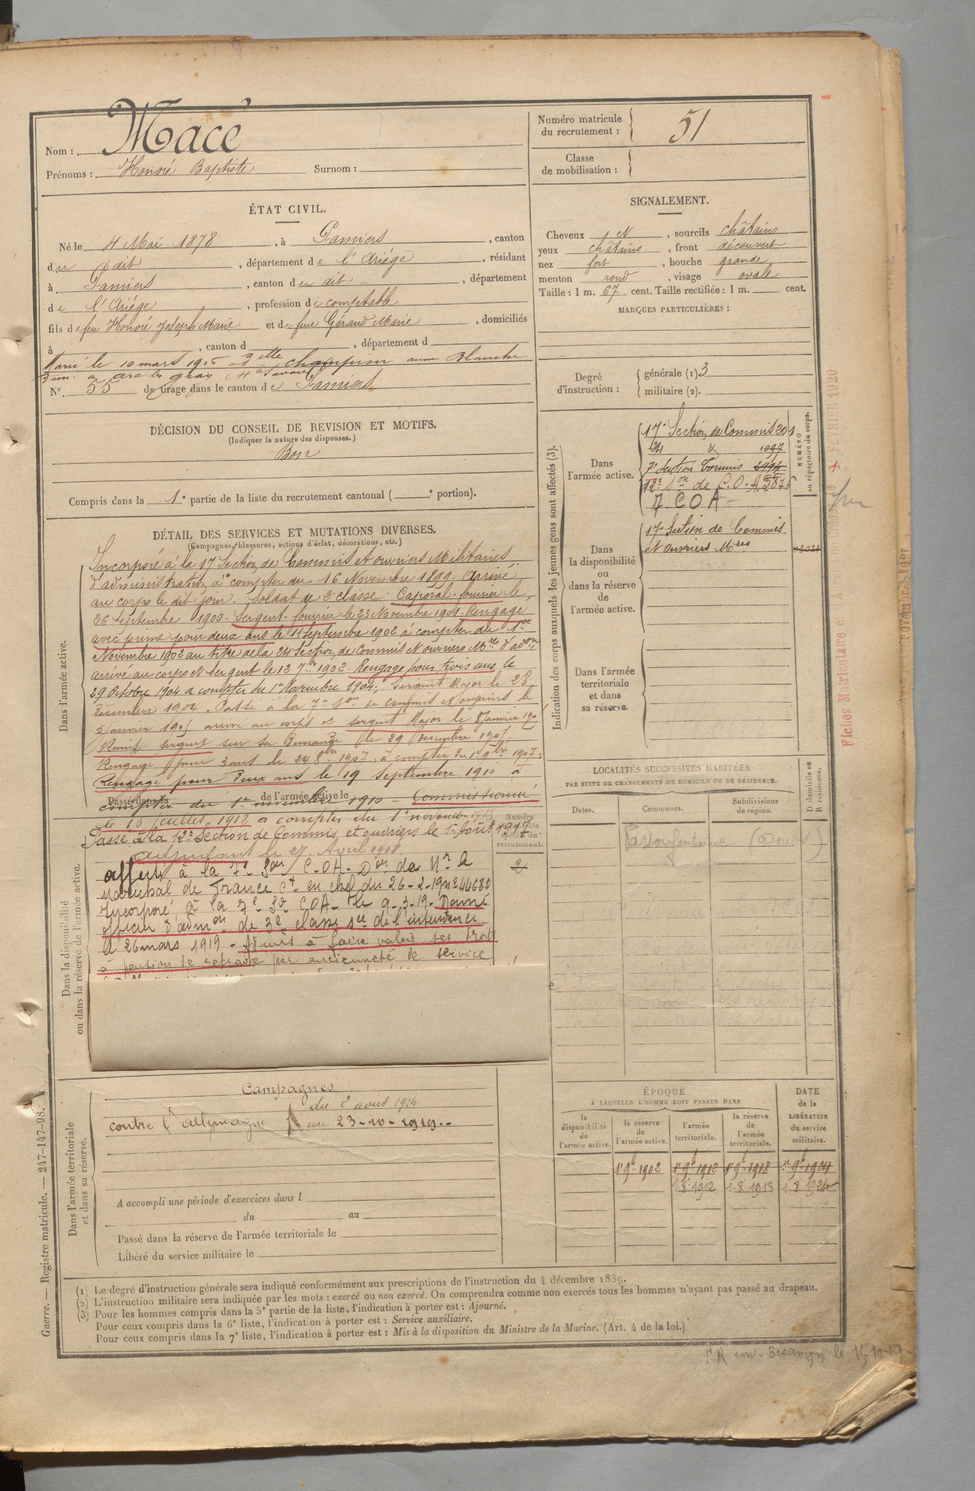 Nom : Macé
Prénoms : Honoré Baptiste Surnom :
Numéro matricule du recrutement : 51
Classe de mobilisation :
ÉTAT CIVIL.
Né le 4 Mai 1878, à Pamiers, canton
du dit, département de l'Ariége, résidant
à Pamiers, canton du dit, département
de l'Ariége, profession de comptable
fils de feu Honoré Joseph Marie et de feue Gérand Marie, domiciliés
à , canton d , département d
Marié le 10 mars 1905 à Dlle Champion Anne Blanche
N° 55 de tirage dans le canton de Pamiers
SIGNALEMENT.
Cheveux N, sourcils châtains
yeux châtains, front découvert
nez fort, bouche grande
menton rond, visage ovale
Taille : 1 m. 67 cent. Taille rectifiée : 1 m. cent.
MARQUES PARTICULIÈRES :
Degré d'instruction : générale (1) 3
militaire (2).
DÉCISION DU CONSEIL DE REVISION ET MOTIFS.
(Indiquer la nature des dispenses.)
Bon
Compris dans la 1e partie de la liste du recrutement cantonal ( e portion).
DÉTAIL DES SERVICES ET MUTATIONS DIVERSES.
(Campagnes, blessures, actions d'éclat, décorations, etc.)
Dans l'armée active.
Incorporé à la 17e Section de Commis et ouvriers Militaires
d'administration à compter du 16 Novembre 1899. arrivé
au corps le dit jour. Soldat de 2e classe. Caporal-fourrier le
26 Septembre 1900. Sergent fourrier le 23 Novembre 1901. Rengagé
avec prime pour deux ans le 11 Septembre 1902 à compter du 1er
Novembre 1902 au titre de la 24 Section de Commis et ouvriers Mres d'adon
arrivé au corps et Sergent le 13 7bre 1902. Rengagé pour trois ans le
29 Octobre 1904 à compter du 1er Novembre 1904. Sergent Major le
Décembre 1904. Passé à la 7e Son de commis et ouvriers le
5 janvier 1905 arrivé au corps et sergent Major le 8 janvier
Remis sergent sur sa demande le 29 Décembre 1905
Rengagé pour 3 ans le 24 8bre 1907 à compter du 1er 9bre 1907.
Rengagé pour Deux ans le 19 Septembre 1910 à
Passé dans la de l'armée active le
compter du 1er novembre 1910 - Commissionné
le 18 juillet 1912 à compter du 1er novembre 1912
Passé à la 12e Section de Commis et ouvriers le 1er Aout 1917
Adjudant le 27 Avril 1918
Dans la disponibilité ou dans la réserve de l'armée active.
affecté à la 7e Son C.O.A. Don de Mr le
Maréchal de France Ct en chef du 26-2-19 n° 44680
Incorporé à la 7e Son COA le 9-3-19. Nommé
officier d'admon de 3e classe sce de l'intendance
le 26 mars 1919 - Admis à faire valoir ses droits
à pension de retraite par ancienneté de service
Indication des corps auxquels les jeunes gens sont affectés (3).
NUMÉRO au répertoire du corps.
Dans l'armée active.
17e Section de Commis 201
24 d° 1097
7e Section Commis
12e Son de C.O.A. 2875
7 COA
Dans la disponibilité ou dans la réserve de l'armée active.
17e Section de Commis
et ouvriers Mres
Dans l'armée territoriale et dans sa réserve.
LOCALITÉS SUCCESSIVES HABITÉES
PAR SUITE DE CHANGEMENTS DE DOMICILE OU DE RÉSIDENCE.
Dates. Communes. Subdivisions de région. D. domicile ou R. résidence.
Passonfontaine (Doubs)
Campagnes
contre l'Allemagne du 2 aout 1914
au 23-10-1919.
Dans l'armée territoriale et dans sa réserve.
A accompli une période d'exercices dans l
du au
Passé dans la réserve de l'armée territoriale le
Libéré du service militaire le
ÉPOQUE
À LAQUELLE L'HOMME DOIT PASSER DANS
la disponibilité de l'armée active.
la réserve de l'armée active.
l'armée territoriale.
la réserve de l'armée territoriale.
DATE de la LIBÉRATION du service militaire.
1er 9bre 1902 1er 9bre 1912 1er 9bre 1918 1er 9bre 1924
1-8-1912 1-8-1918 1-8-1924
(1) Le degré d'instruction générale sera indiqué conformément aux prescriptions de l'instruction du 4 décembre 1889.
(2) L'instruction militaire sera indiquée par les mots : exercé ou non exercé. On comprendra comme non exercés tous les hommes n'ayant pas passé au drapeau.
(3) Pour les hommes compris dans la 5e partie de la liste, l'indication à porter est : Ajourné.
Pour ceux compris dans la 6e liste, l'indication à porter est : Service auxiliaire.
Pour ceux compris dans la 7e liste, l'indication à porter est : Mis à la disposition du Ministre de la Marine. (Art. 4 de la loi.)
Guerre. — Registre matricule. — 247-147-98.